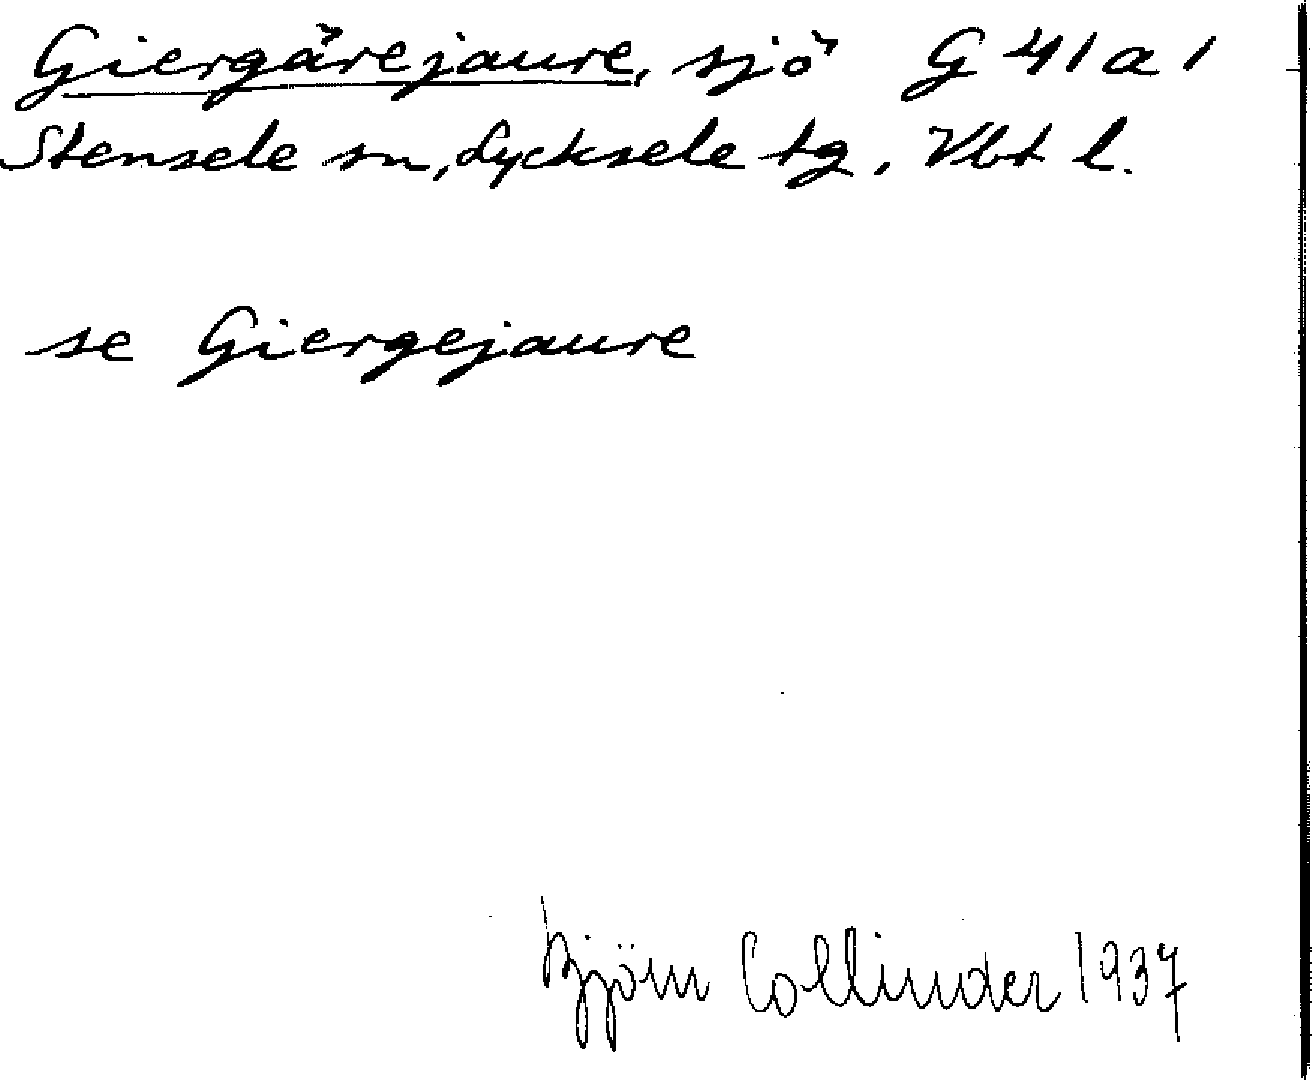 Giergärejaure, sjö G 41 a 1
Stensele sn, Lycksele tg, Vbt l.
se Giergejaure
Björn Collinder 1937